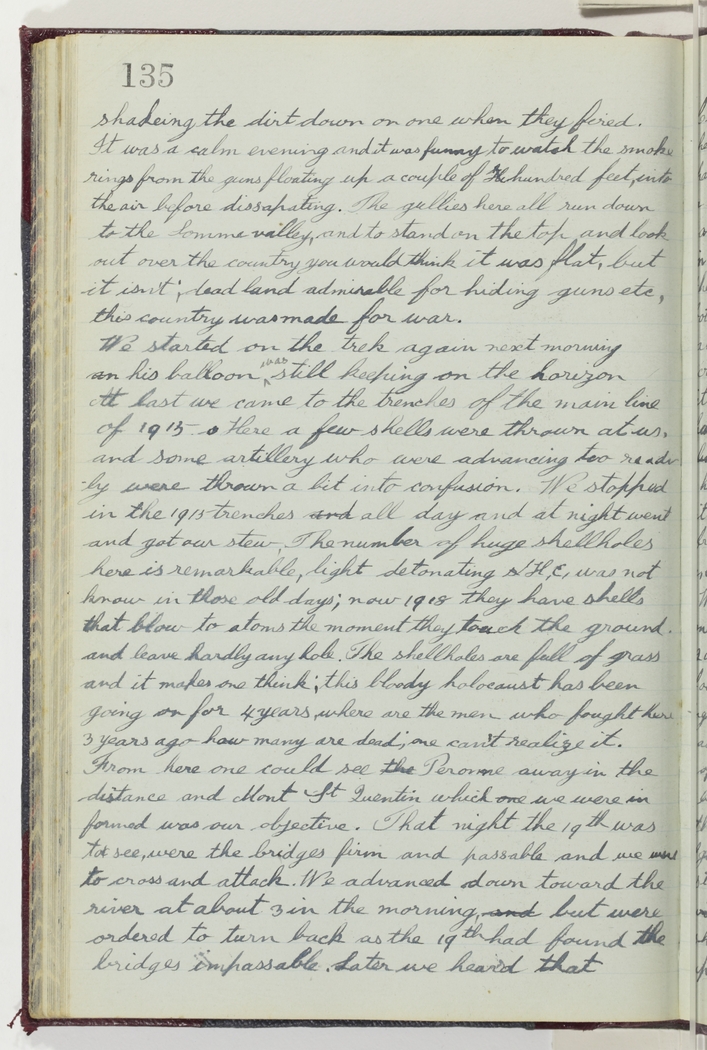 135
shakeing the dirt down on one when they fired.
It was a calm evening and it was funny to watch the smoke
rings from the guns floating up a couple of hundred feet, into
the air before dissapating. The gullies here all run down
to the Somme valley, and to stand on the top and look
out over the country you would think it was flat, but
it isnt; dead land admirable for hiding guns etc,
this country was made for war.
We started on the trek again next morning
an his balloon was still keeping on the horizon
At last we came to the trenches of the main line
of 1915. Here a few shells were thrown at us,
and some artillery who were advancing too readi
-ly were thrown a bit into confusion. We stopped
in the 1915 trenches and all day and at night went
and got our stew. The number of huge shellholes
here is remarkable, light detonating H.E, was not
know in those old days; now 1918 they have shells
that blow to atoms the moment they touch the ground.
and leave hardly any hole. The shellholes are full of grass
and it makes one think; this bloody holocaust has been
going on for 4 years, where are the men who fought here
3 years ago how many are dead; one can't realize it.
From here one could see the Peronne away in the
distance and Mont St Quentin which one we were in
formed was our objective. That night the 19th was
to see, were the bridges firm and passable and we were
to cross and attack. We advanced down toward the
river at about 3 in the morning, and but were
ordered to turn back as the 19th had found the
bridges impassable. Later we heard that